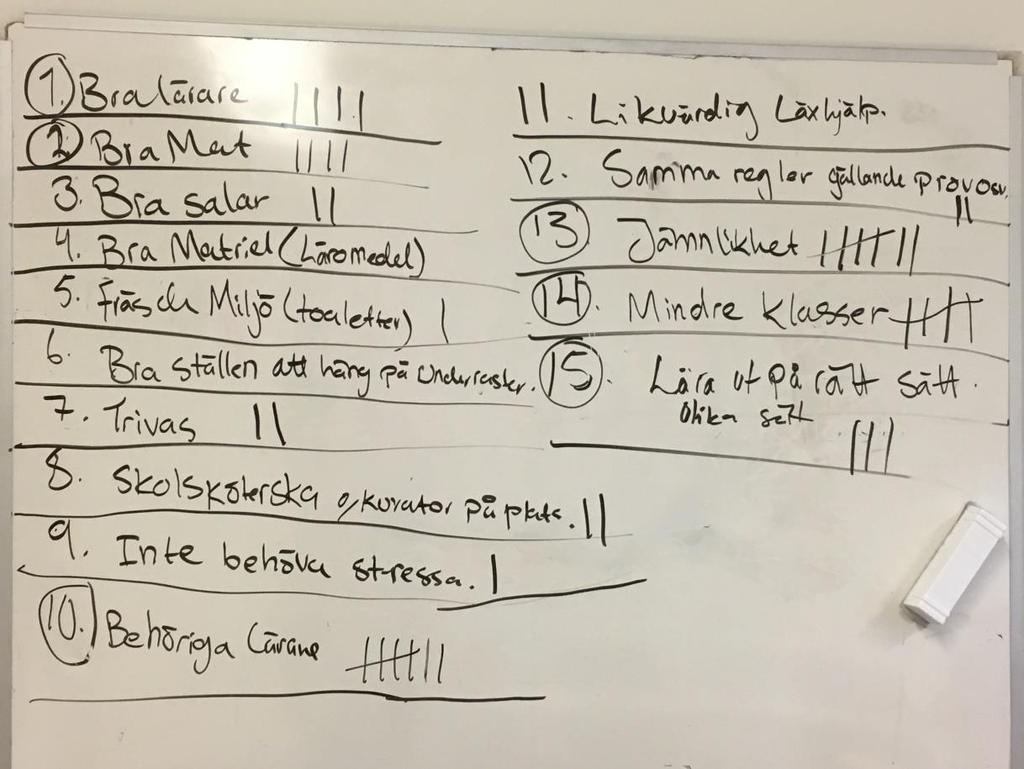 1. Bra lärare ||||
2. Bra Mat ||||
3. Bra salar ||
4. Bra Matriel (Läromedel)
5. fräsch Miljö (toaletter) |
6. Bra ställen att häng på under raster.
7. Trivas ||
8. Skolsköterska o/kurator på plats. ||
9. Inte behöva stressa. |
10. Behöriga lärare |||||||
11. Likvärdig Läxhjälp.
12. Samma regler gällande provosv.
||
13 Jämnlikhet |||||||
14. Mindre klasser |||||
15. Lära ut på rätt sätt.
Olika sätt
|||